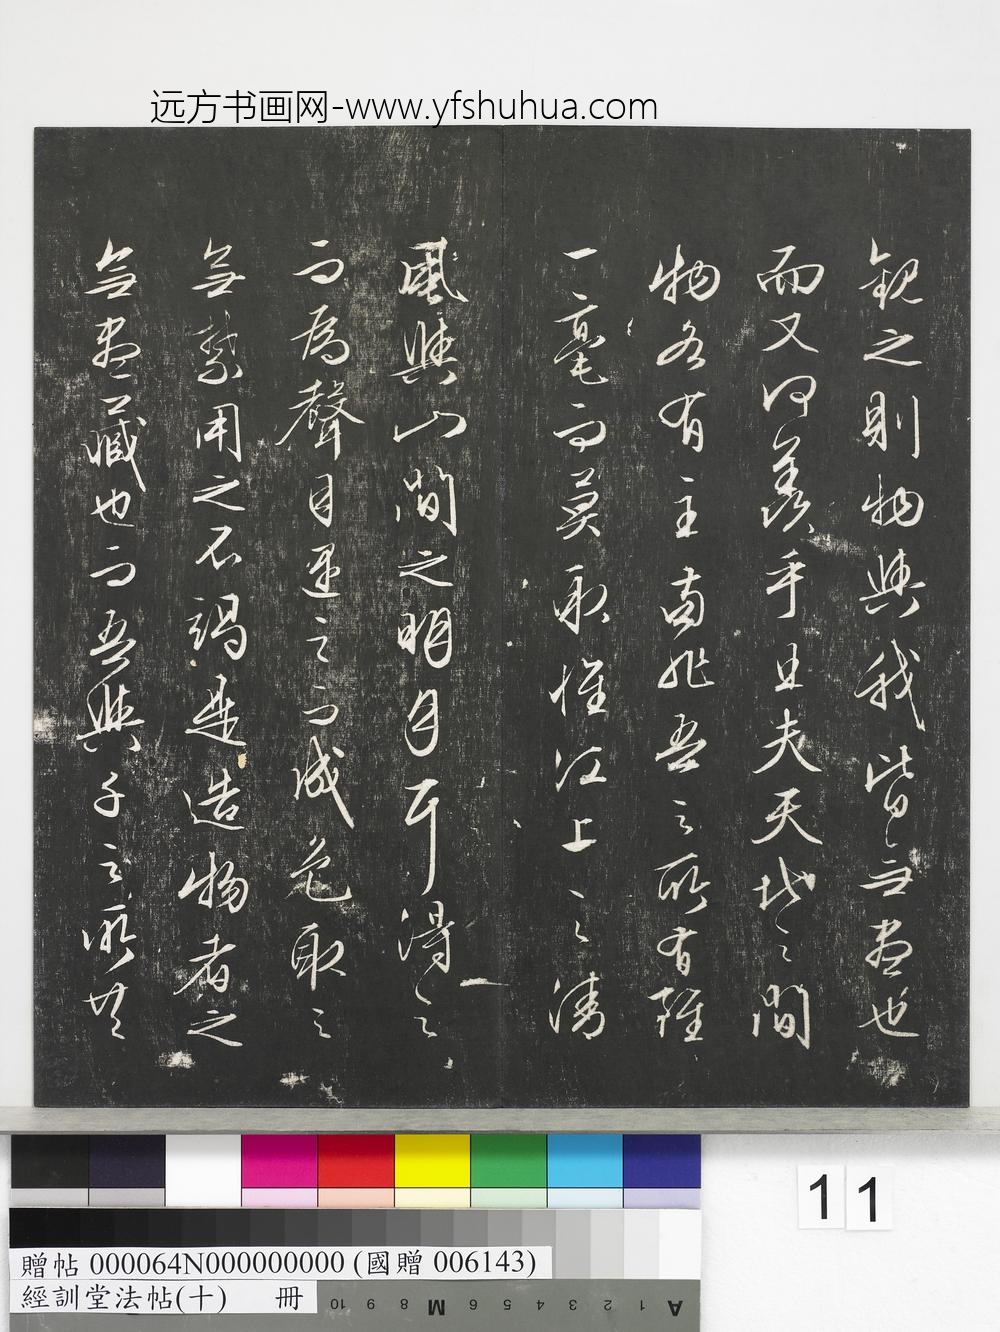 远方书画网-www.yfshuhua.com
觀之則物與我皆無盡也
而又何羨乎且夫天地之間
物各有主苟非吾之所有雖
一毫而莫取惟江上之清
風與山間之明月耳得之
而為聲目遇之而成色取之
無禁用之不竭是造物者之
無盡藏也而吾與子之所共
11
贈帖 000064N000000000 (國贈 006143)
經訓堂法帖(十) 冊
10 9 8 M 6 5 4 3 2 1 A